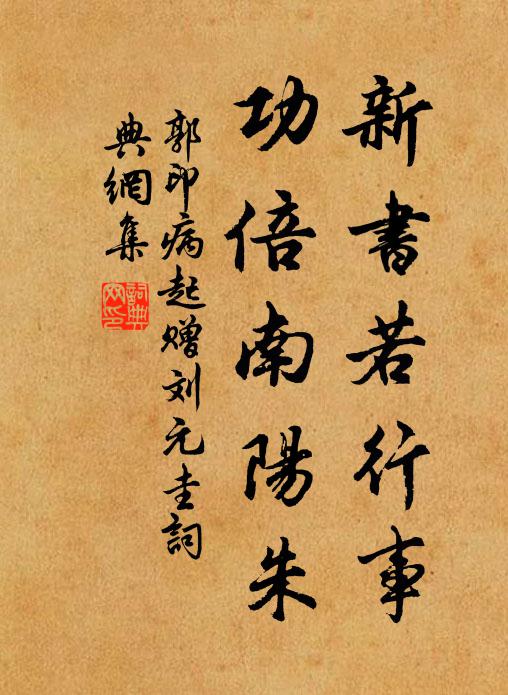 新書若行事
功倍南陽朱
郭印病起贈刘元圭詞
典網集
詞典
网印